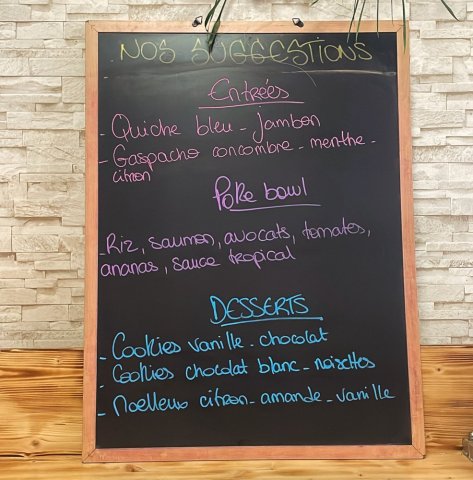 NOS SUGGESTIONS
Entrées
- Quiche bleu - Jambon
- Gaspacho concombre - menthe -
citron
Poke bowl
- Riz, saumon, avocats, tomates,
ananas, sauce tropical
DESSERTS
- Cookies vanille - chocolat
- Cookies chocolat blanc - noisettes
- Moelleux citron - amande - vanille